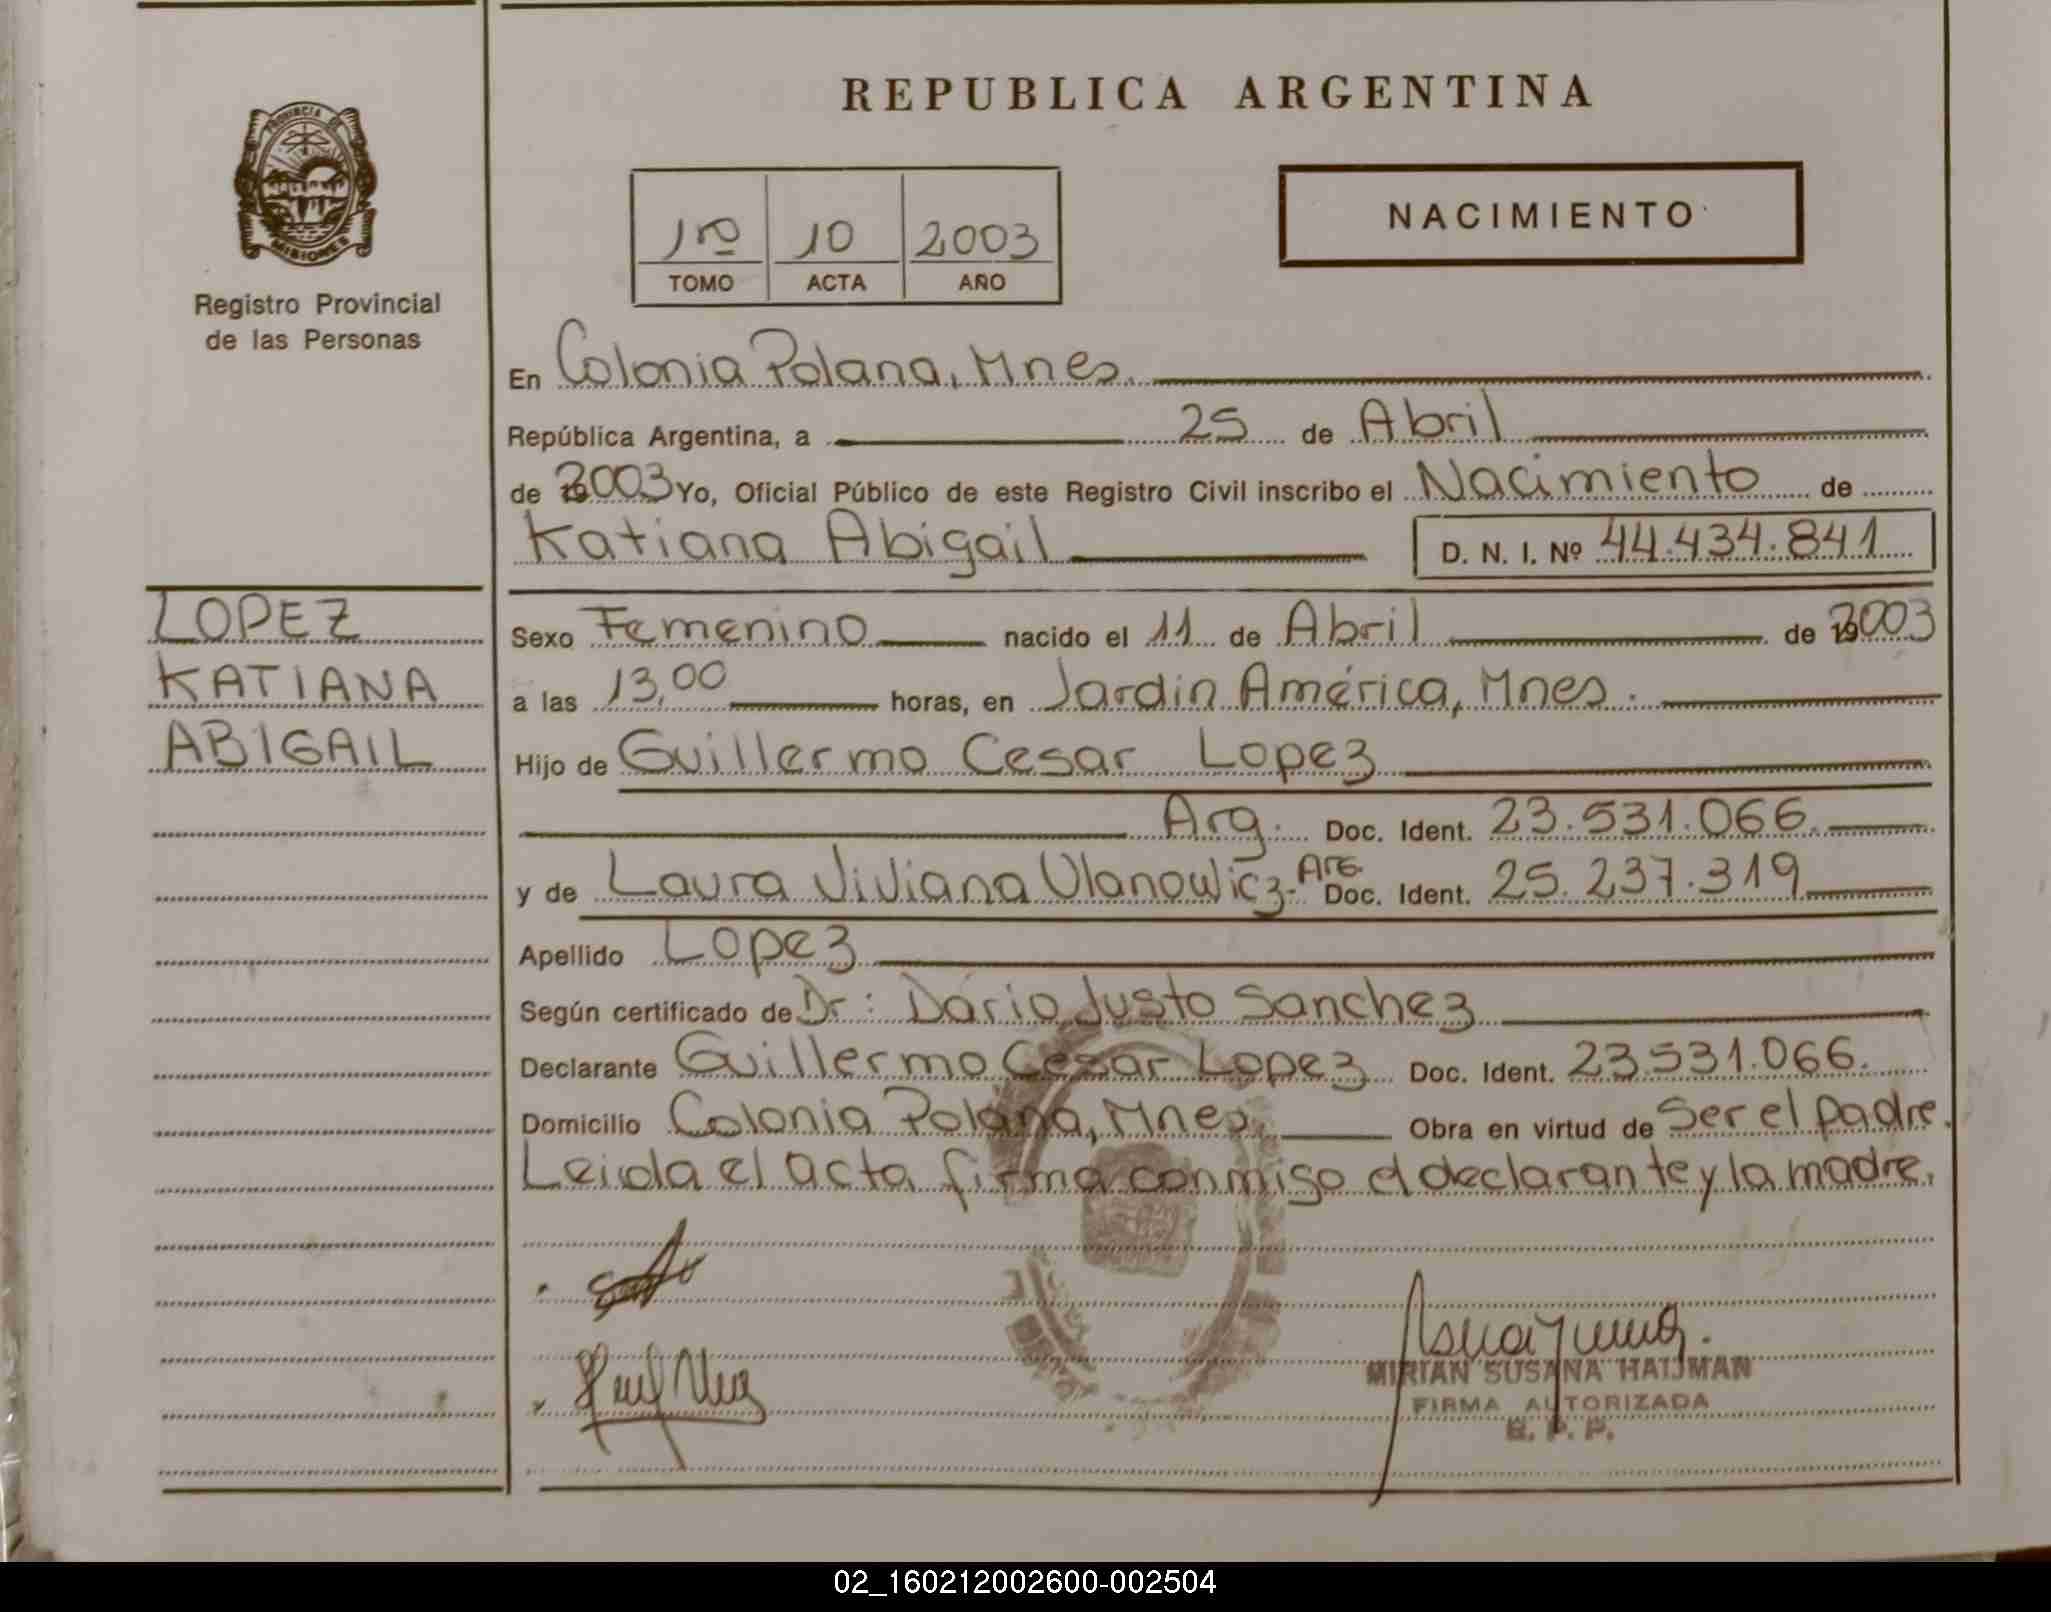 REPUBLICA ARGENTINA
PROVINCIA DE
MISIONES
Registro Provincial
de las Personas
1rº 10 2003
TOMO ACTA AÑO
NACIMIENTO
En Colonia Polana, Mnes.
República Argentina, a 25 de Abril
de 2003 Yo, Oficial Público de este Registro Civil inscribo el Nacimiento de
Katiana Abigail D. N. I. Nº 44.434.841
LOPEZ
KATIANA
ABIGAIL
Sexo Femenino nacido el 11 de Abril de 2003
a las 13,00 horas, en Jardin América, Mnes.
Hijo de Guillermo Cesar Lopez
Arg. Doc. Ident. 23.531.066.
y de Laura Viviana Ulanowicz- Arg. Doc. Ident. 25.237.319
Apellido Lopez
Según certificado de Dr: Dario Justo Sanchez
Declarante Guillermo Cesar Lopez Doc. Ident. 23.531.066.
Domicilio Colonia Polana, Mnes. Obra en virtud de Ser el padre.
Leida el acta, firma conmigo el declarante y la madre.
MIRIAN SUSANA HAIJMAN
FIRMA AUTORIZADA
R. P. P.
02_160212002600-002504